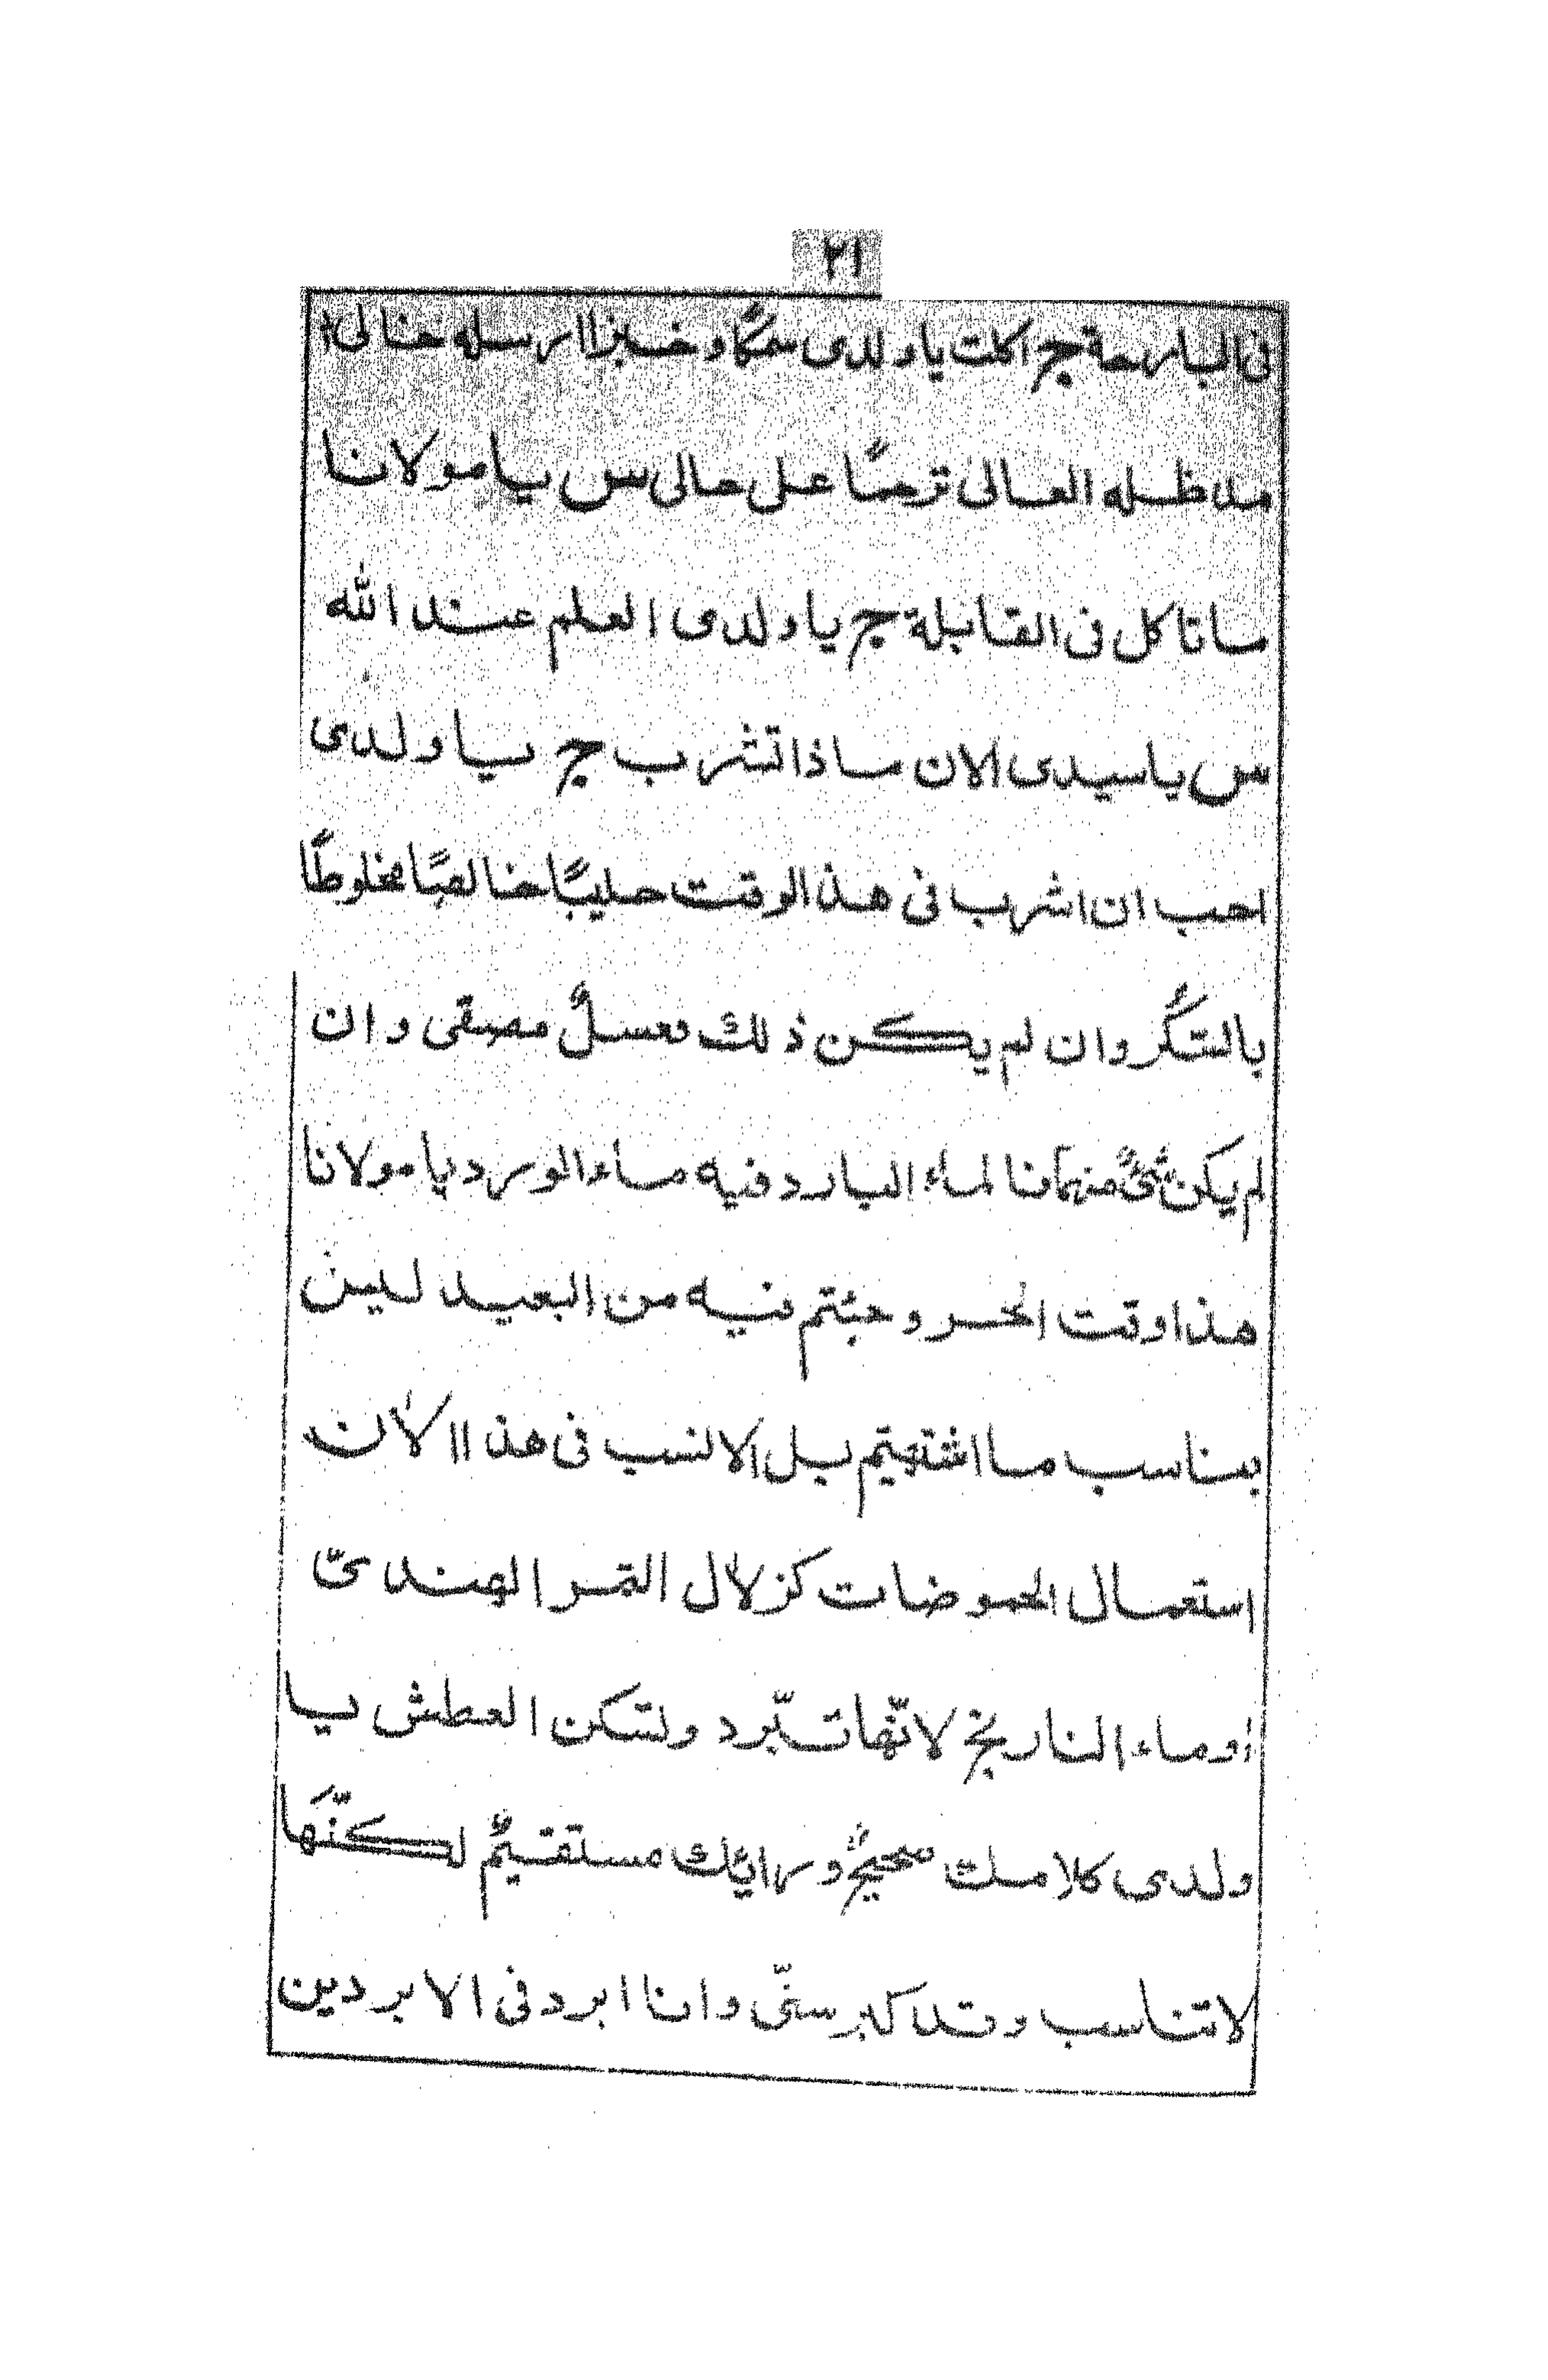 ٢١
فى البارحة ج اكلت ياولدى سمكًا و خبزا ارسله خالى
مد ظله العالى ترحمًا على حالى س يا مولانا
ما تاكل فى القابلة ج يا ولدى العلم عند الله
س ياسيدى الان ماذا تشرب ج يا ولدى
احب ان اشرب فى هذا الوقت حليبًا خالصًا مخلوطًا
بالسّكّر وان لم يكن ذلك فعسلٌ مصفى و ان
لم يكن شئٌ منهما فالماء البارد فيه ماء الورد يا مولانا
هذا وقت الحر و جئتم فيه من البعيد ليس
بمناسب ما اشتهيتم بل الانسب فى هذا الاٰن
استعمال الحموضات كزلال التمر الهندىّ
او ماء النارنج لانّها تبّرد ولتسكن العطش يا
ولدى كلامك صحيحٌ و رائيك مستقيمٌ لكنّهَا
لا تناسب وقد كبر سنّى و انا ابرد فى الابردين